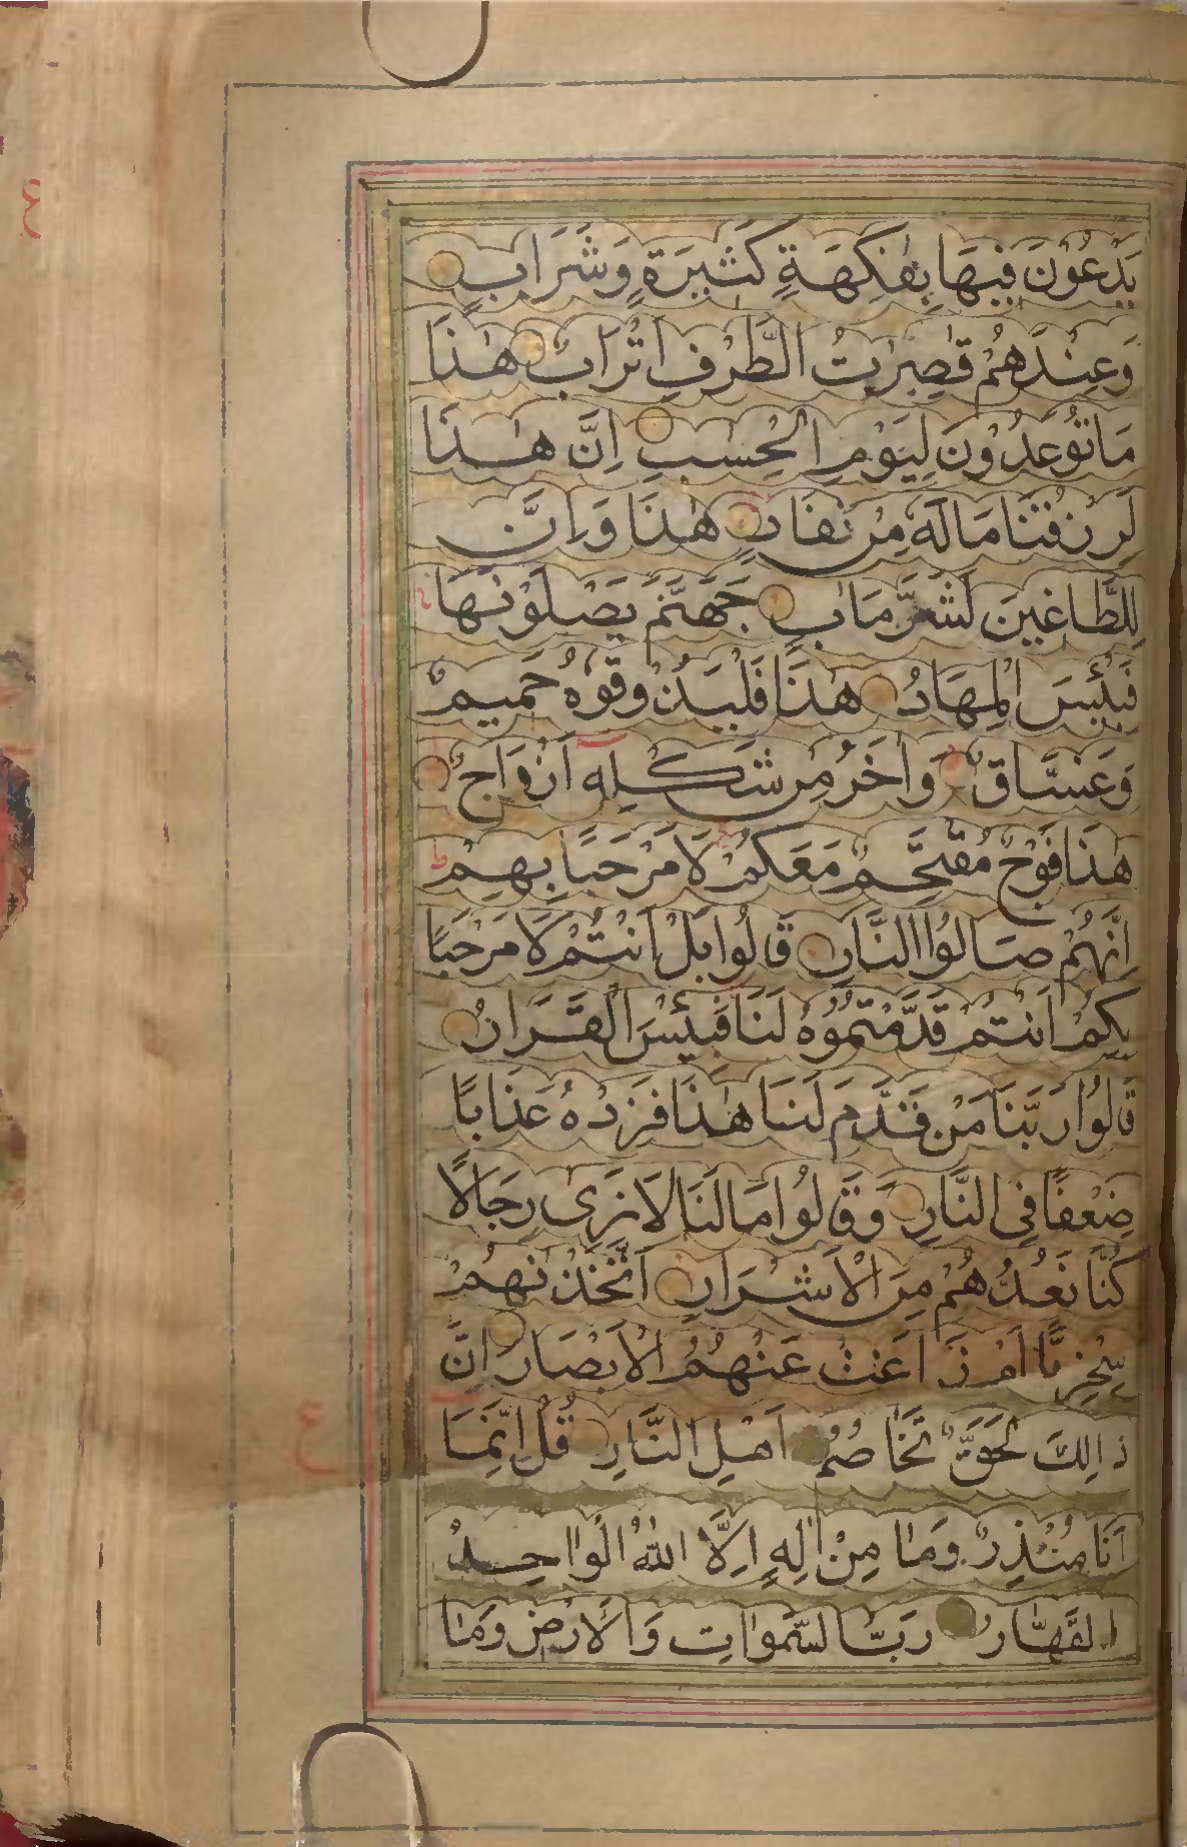 يَدْعُونَ فِيهَا بِفٰكِهَةٍ كَثِيرَةٍ وَشَرَابٍ
وَعِنْدَهُمْ قٰصِرٰتُ الطَّرْفِ اَتْرَابٌ هٰذَا
مَا تُوعَدُونَ لِيَوْمِ الْحِسٰبِ اِنَّ هٰذَا
لَرِزْقُنَا مَا لَهُ مِنْ نَفَادٍ هٰذَا وَاِنَّ
لِلطَّاغِينَ لَشَرَّ مَاٰبٍ جَهَنَّمَ يَصْلَوْنَهَا
فَبِئْسَ الْمِهَادُ هٰذَا فَلْيَذُوقُوهُ حَمِيمٌ
وَغَسَّاقٌ وَاٰخَرُ مِنْ شَكْلِهِ اَزْوَاجٌ
هٰذَا فَوْجٌ مُقْتَحِمٌ مَعَكُمْ لَا مَرْحَبًا بِهِمْ
اِنَّهُمْ صَالُوا النَّارِ قَالُوا بَلْ اَنْتُمْ لَا مَرْحَبًا
بِكُمْ اَنْتُمْ قَدَّمْتُمُوهُ لَنَا فَبِئْسَ الْقَرَارُ
قَالُوا رَبَّنَا مَنْ قَدَّمَ لَنَا هٰذَا فَزِدْهُ عَذَابًا
ضِعْفًا فِى النَّارِ وَقَالُوا مَا لَنَا لَا نَرٰى رِجَالًا
كُنَّا نَعُدُّهُمْ مِنَ الْاَشْرَارِ اَتَّخَذْنٰهُمْ
سِخْرِيًّا اَمْ زَاغَتْ عَنْهُمُ الْاَبْصَارُ اِنَّ
ذالِكَ لَحَقٌّ تَخَاصُمُ اَهْلِ النَّارِ قُلْ اِنَّمَا
اَنَا مُنْذِرٌ وَمَا مِنْ اِلٰهٍ اِلَّا اللّٰهُ الْوَاحِدُ
الْقَهَّارُ رَبُّ السَّمٰوَاتِ وَالْاَرْضِ وَمَا
ع